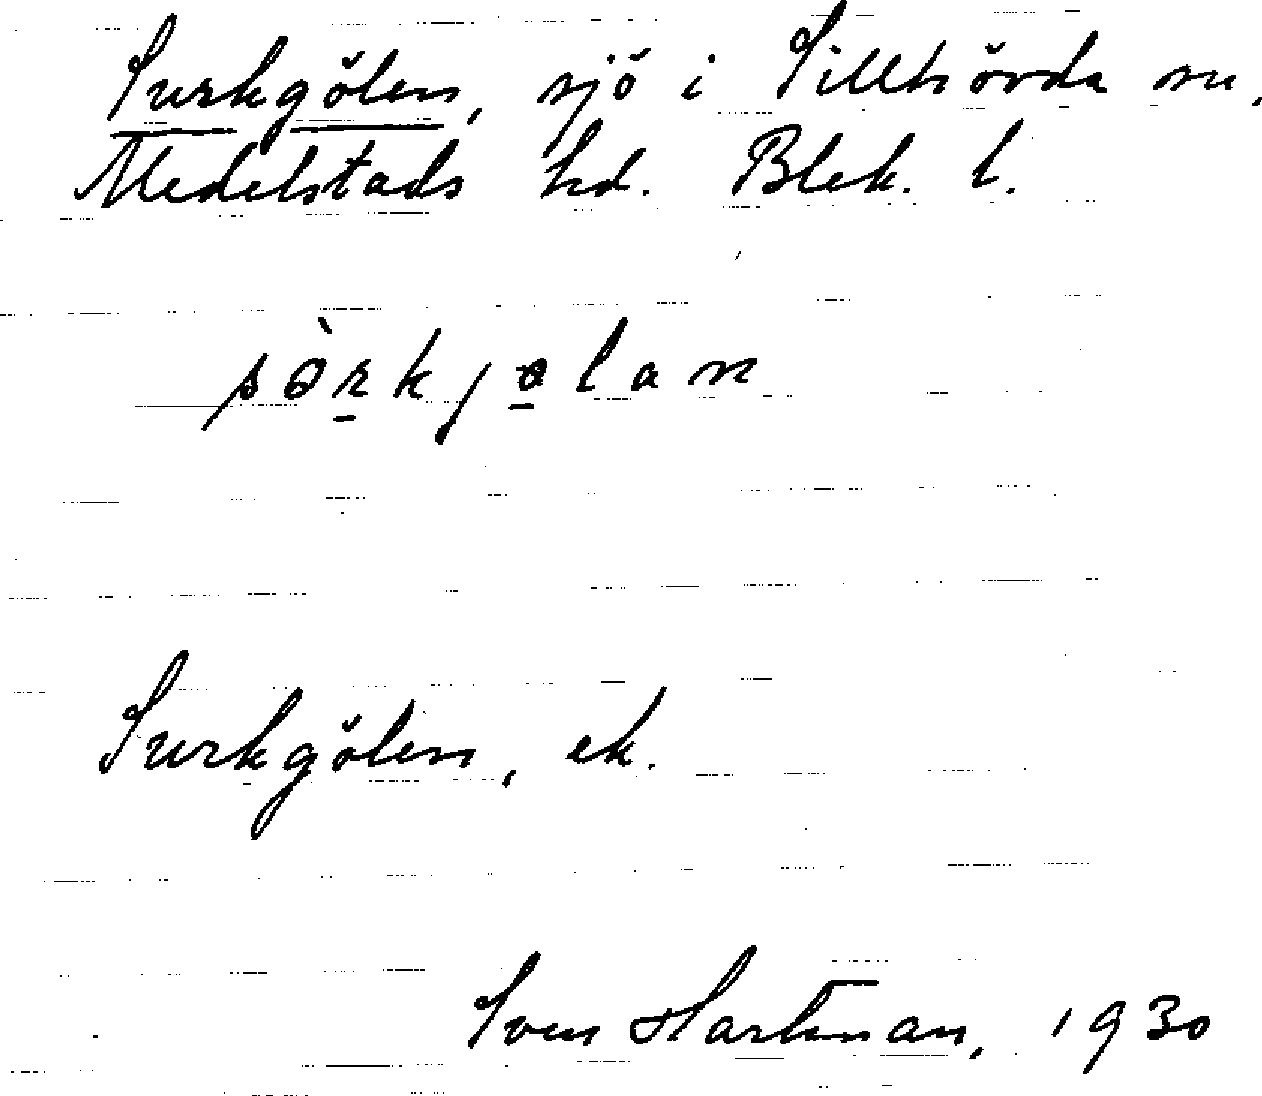 Surkgölen, sjö i Sillhövda sn,
Medelstads hd. Blek. l.
sòrkjølan
Surkgölen, ek.
Sven Hartman, 1930